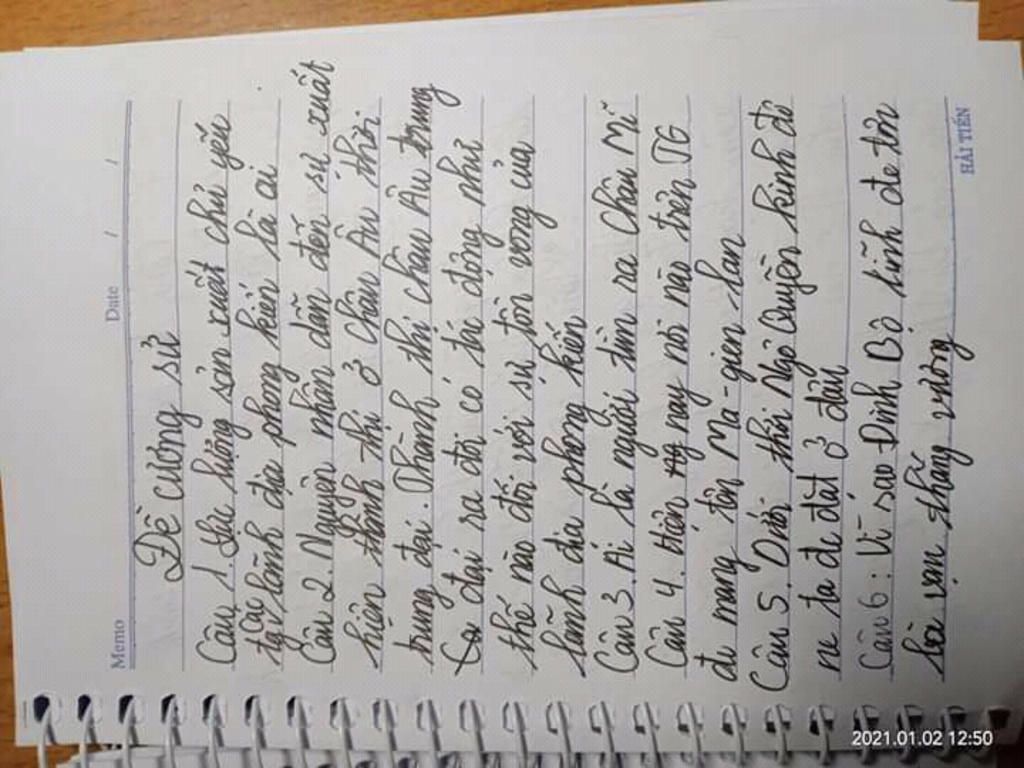 Memo
Date / /
Đề cương sử
Câu 1. Lực lượng sản xuất chủ yếu
tại các lãnh địa phong kiến là ai
Câu 2. Nguyên nhân dẫn đến sự xuất
hiện thành thị ở Châu Âu thời
trung đại. Thành thị châu Âu trung
đại ra đời có tác động như
thế nào đối với sự tồn vong của
lãnh địa phong kiến
Câu 3. Ai là người tìm ra Châu Mĩ
Câu 4. Hiện nay nơi nào trên TG
đi mang tên Ma-gien-lan
Câu 5. Dưới thời Ngô Quyền kinh đô
nc ta đc đặt ở đâu
Câu 6: Vì sao Đinh Bộ Lĩnh đc tôn
là vạn thắng vương
HẢI TIẾN
2021.01.02 12:50